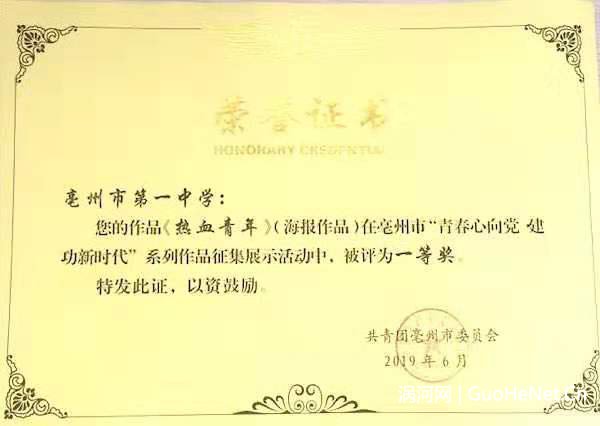 荣誉证书
HONORARY CREDENTIAL
亳州市第一中学：
您的作品《热血青年》（海报作品）在亳州市“青春心向党·建
功新时代”系列作品征集展示活动中，被评为一等奖。
特发此证，以资鼓励。
共青团亳州市委员会
2019年6月
涡河网 | GuoHeNet.Cn